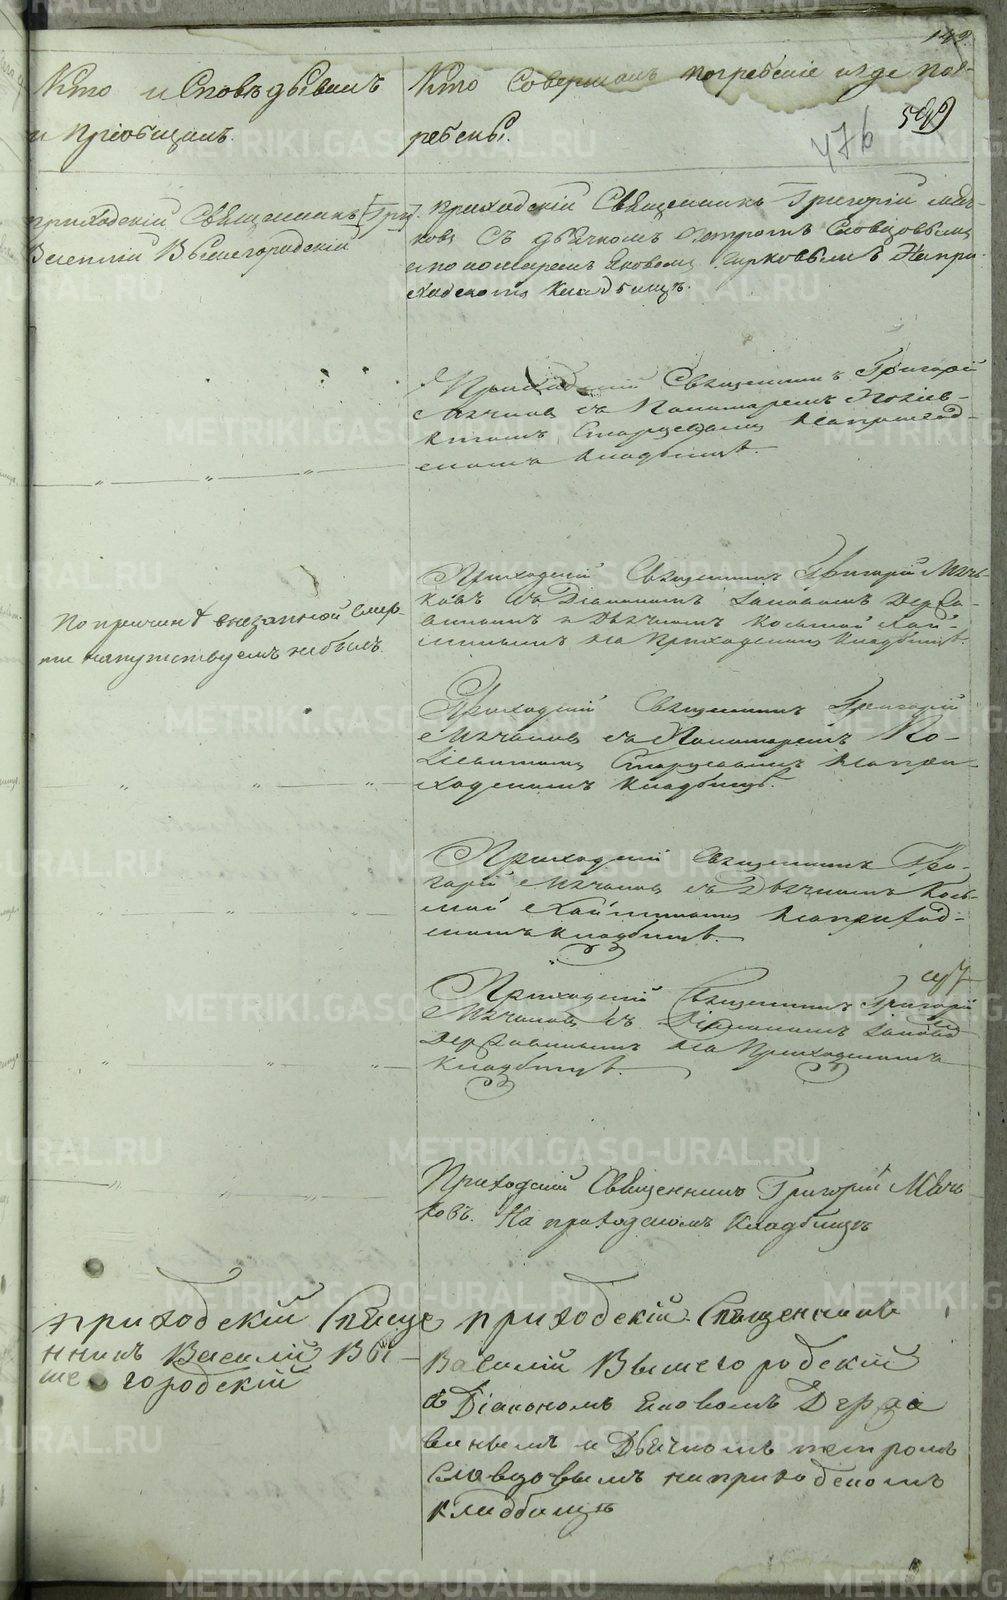 142
Кто исповѣдывалъ
и пріобщалъ.
Кто совершалъ погребеніе и гдѣ пог-
ребены.
599
476
приходскій Священникъ
Василій Вышегородскій
приходскій Священникъ Григорій Мяч-
ковъ съ дьячкомъ Петромъ Словцовымъ
и пономаремъ Яковомъ на при-
ходскомъ кладбищѣ.
Приходскій Священникъ Григорій
Мячковъ съ Пономаремъ
Старцевымъ на приход-
скомъ кладбищѣ.
По причинѣ внезапной смер-
ти напутствуемъ не былъ.
Приходскій Священникъ Григорій Мячь-
ковъ съ Діакономъ Іаковомъ Держа-
винымъ и Дьячкомъ Космою
на Приходскомъ кладбищѣ.
Приходскій Священникъ Григорій
Мячковъ съ Пономаремъ
Старцевымъ на при-
ходскомъ кладбищѣ.
Приходскій Священникъ Гри-
горій Мячковъ съ Дьячкомъ Козь-
мой на приход-
скомъ кладбищѣ.
Приходскій Священникъ Григорій
Мячковъ съ Діакономъ Іаковомъ
Державинымъ на Приходскомъ
кладбищѣ.
Приходскій Священникъ Григорій Мячь
ковъ. На приходскомъ кладбищѣ
приходскій Свяще
нникъ Василій Вы-
шегородскій
приходскій Священникъ
Василій Вышегородскій
съ Діакономъ Яковомъ Держа
винымъ и Дьячкомъ петромъ
Словцовымъ на приходскомъ
кладбищѣ
METRIKI.GASO-URAL.RU